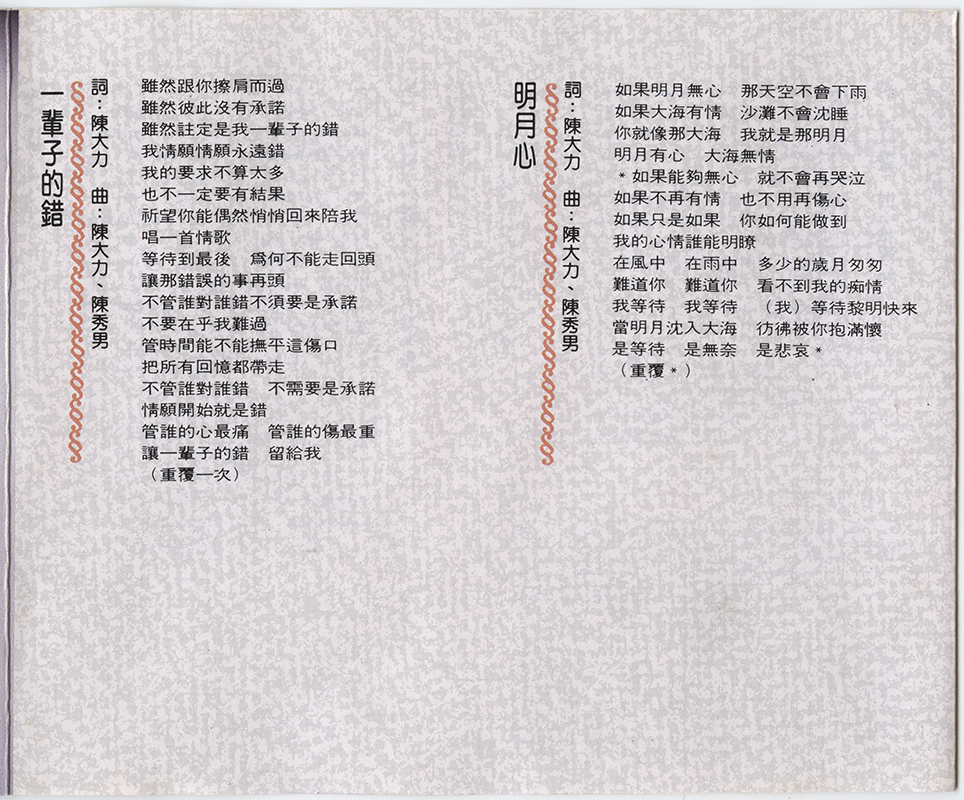 一輩子的錯
詞：陳大力　曲：陳大力、陳秀男
雖然跟你擦肩而過
雖然彼此沒有承諾
雖然註定是我一輩子的錯
我情願情願永遠錯
我的要求不算太多
也不一定要有結果
祈望你能偶然悄悄回來陪我
唱一首情歌
等待到最後　爲何不能走回頭
讓那錯誤的事再頭
不管誰對誰錯不須要是承諾
不要在乎我難過
管時間能不能撫平這傷口
把所有回憶都帶走
不管誰對誰錯　不需要是承諾
情願開始就是錯
管誰的心最痛　管誰的傷最重
讓一輩子的錯　留給我
（重覆一次）
明月心
詞：陳大力　曲：陳大力、陳秀男
如果明月無心　那天空不會下雨
如果大海有情　沙灘不會沈睡
你就像那大海　我就是那明月
明月有心　大海無情
＊如果能夠無心　就不會再哭泣
如果不再有情　也不用再傷心
如果只是如果　你如何能做到
我的心情誰能明瞭
在風中　在雨中　多少的歲月匆匆
難道你　難道你　看不到我的痴情
我等待　我等待　（我）等待黎明快來
當明月沈入大海　彷彿被你抱滿懷
是等待　是無奈　是悲哀＊
（重覆＊）